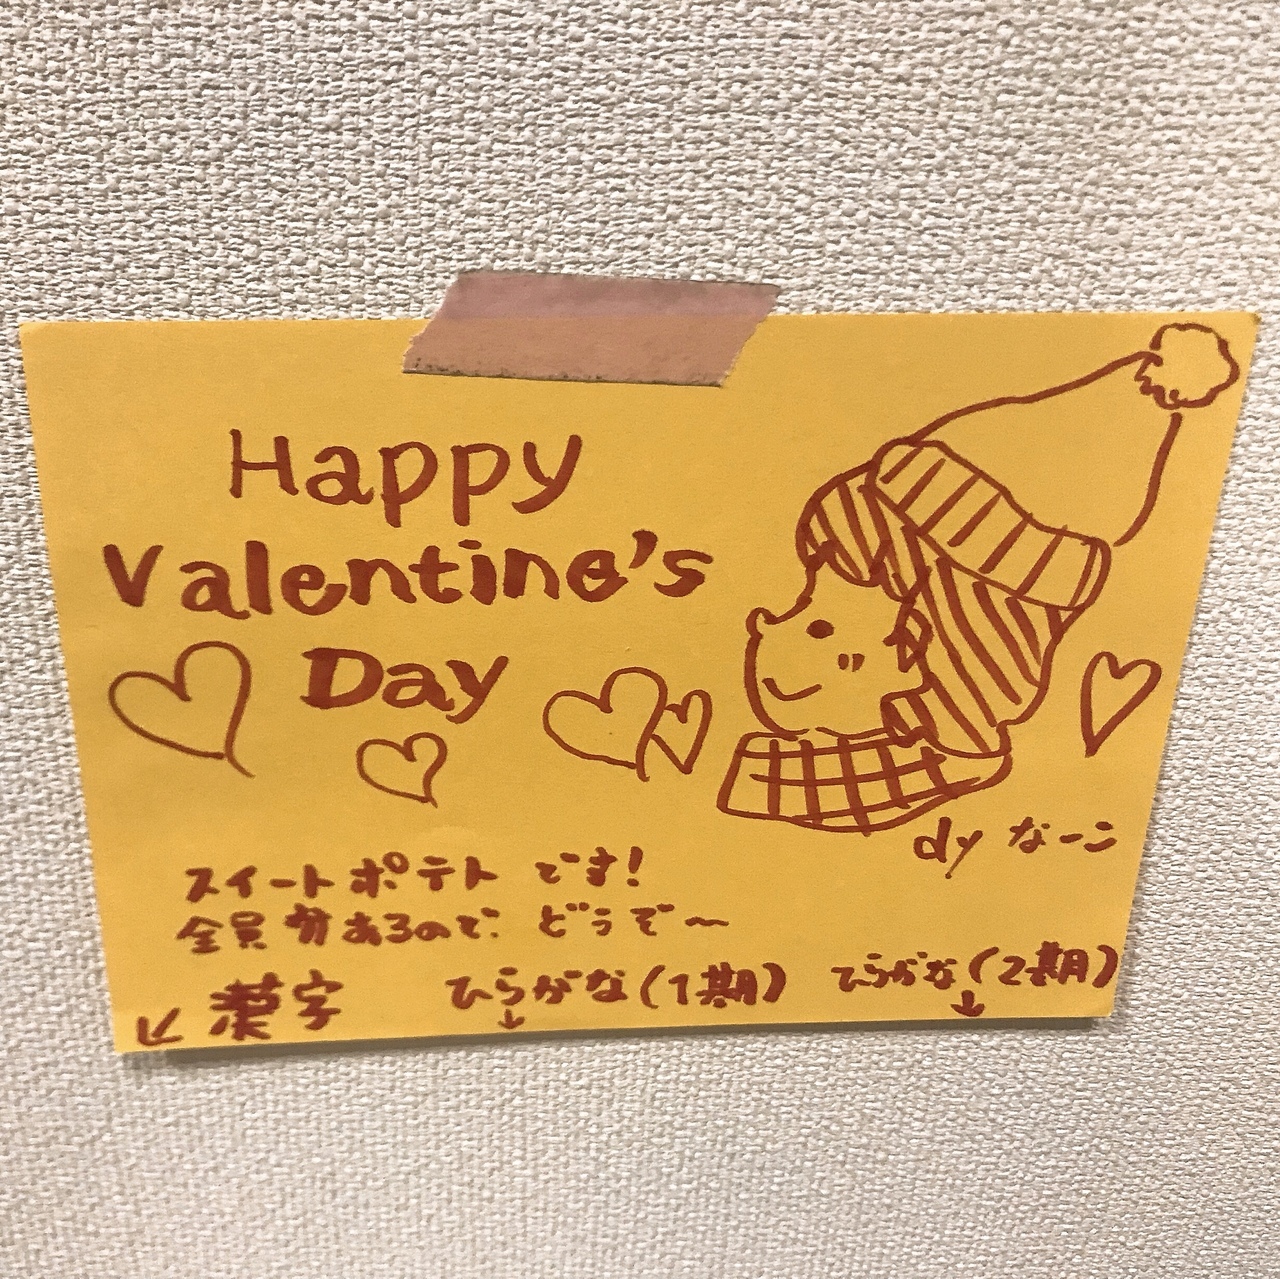 Happy
Valentine's
Day
dy なーこ
スイートポテトです!
全員分あるので、どうぞ〜
漢字
ひらがな(1期)
ひらがな(2期)